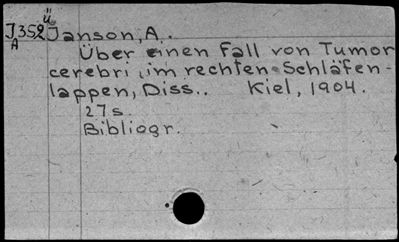 ü
J352 Janson, A.
A
Über einen Fall von Tumor
cerebri im rechten Schläfen-
lappen, Diss.. Kiel, 1904.
27s.
Bibliogr.